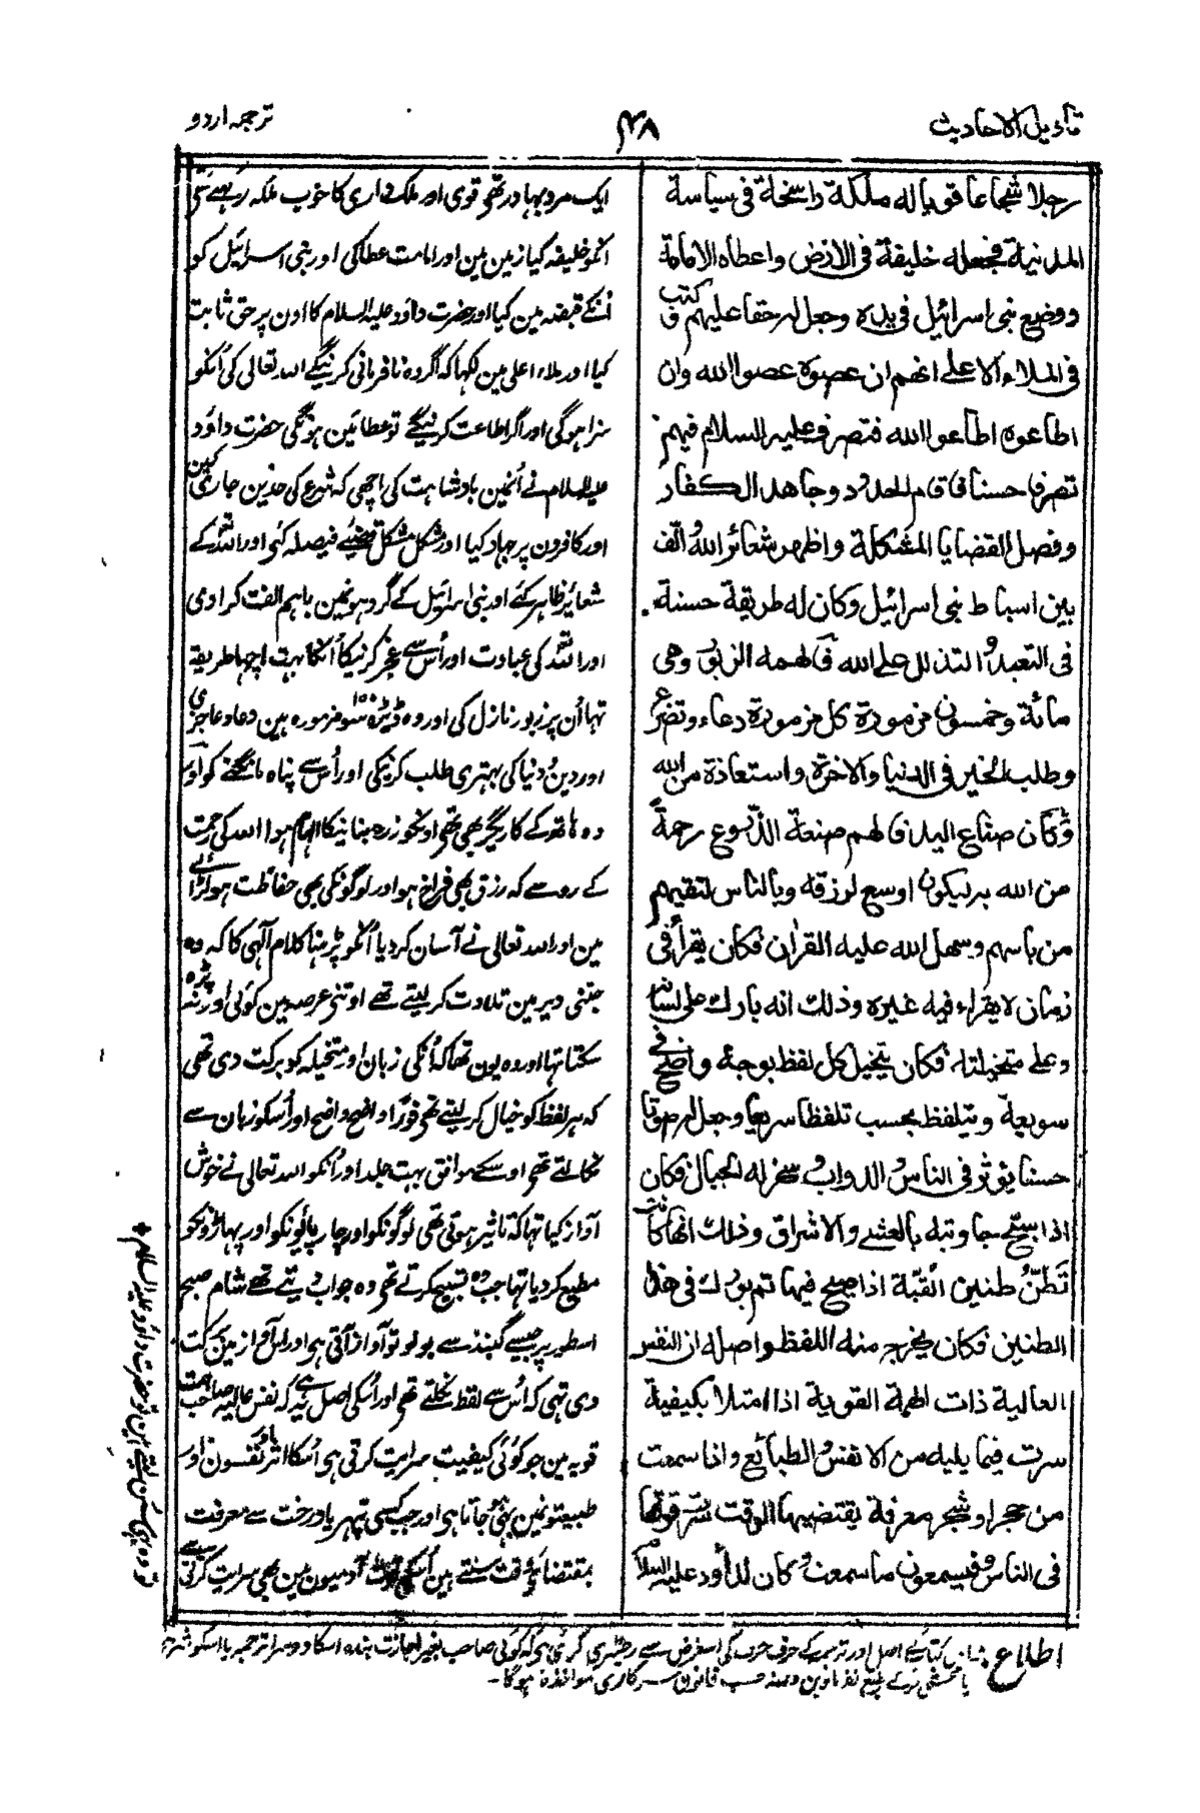 تأويل الاحاديث
۴۸
ترجمہ اردو
رجلا شجاعا قويا له ملكة راسخة فى سياسة
المدنية فجعله خليفة فى الارض واعطاه الامامة
ووضع بنى اسرائيل فى يده وجعل له حقا عليهم وكتب
فى الملاء الاعلے انهم ان عصوه عصوا الله وان
اطاعوه اطاعوا الله فتصرف عليه السلام فيهم
تصرفا حسنا فاقام الحدود وجاهد الكفار
وفصل القضايا المشكلة واظهر شعائر الله والّف
بين اسباط بنى اسرائيل وكان له طريقة حسنة
فى التعبد والتذلل علے الله فألهمه الزبور وهى
مائة وخمسون مزمورة كل مزمورة دعاء وتضرع
وطلب الخير فى الدنيا والاخرة واستعاذة من الله
وكان صناع اليد فالهم صنعة الدروع رحمةً
من الله به ليكون اوسع لرزقه وبالناس لتقيهم
من باسهم وسهل الله عليه القرأن فكان يقرأ فى
زمان لا يقراء فيه غيره وذلك انه بارك على لسانه
وعلے متخيلته فكان يتخيل كل لفظ بوجه واضح فى
سويعة ويتلفظ بحسب تلفظا سريعا وجعل له صوتا
حسنا يوثر فى الناس والدواب وسخر له الجبال فكان
اذا سبّح جاوبته بالعشے والاشراق وذلك انها كانت
تَطنّ طنين القبّة اذا صيح فيها ثم بورك فى هذا
الطنين فكان يخرج منه اللفظ واصله ان النفس
العالية ذات الهمة القوية اذا امتلا بكيفية
سرت فيما يليه من الانفس والطبائع واذا سمعت
من حجر او شجر معرفة يقتضيها الوقت سرت قوتها
فى الناس فيسمعون ما سمعت وكان لداؤد عليه السلام
ایک مرد بہادر تھی قوی اور ملک داری کا خوب ملکہ رکھتے تھے
انکو خلیفہ کیا زمین مین اور امامت عطا کی اور بنی اسرائیل کو
اُنکے قبضہ مین کیا اور حضرت داؤد علیہ السلام کا اون پر حق ثابت
کیا اور ملاء اعلی مین لکھا کہ اگر وہ نافرمانی کرینگے اللہ تعالی کی اُنکو
سزا ہوگی اور اگر اطاعت کرینگے تو عطائین ہونگی حضرت داؤد
علیہ السلام نے اُنمین بادشاہت کی اچھی کہ شرع کی حدین جاری کین
اور کافرون پر جہاد کیا اور مشکل مشکل قضئے فیصلہ کئی اور اللہ کے
شعائر ظاہر کئے اور بنی اسرائیل کے گروہونمین باہم الفت کرا دی
اور اللہ کی عبادت اور اُس سے عجز کرنیکا اُنکا بہت اچھا طریقہ
تہا اُن پر زبور نازل کی اور وہ ڈیڑہ سو ۱۵۰ مزمورہ ہین دعا و عاجزی
اور دین دُنیا کی بہتری طلب کرنیکی اور اُس سے پناہ مانگنے کو اور
وہ ہاتھ کے کاریگر بھی تھی اونکو زرہ بنانیکا الہام ہوا اللہ کی رحمت
کے رو سے کہ رزق بھی فراخ ہو اور لوگونکی بھی حفاظت ہو لڑائی
مین اور اللہ تعالی نے آسان کر دیا اُنکو پڑہنا کلام آلٰہی کا کہ وہ
جتنی دیر مین تلاوت کر لیتے تھے اوتنی عرصہ مین کوئی اور نہ پڑہ
سکتا تہا اور وہ یون تھا کہ اُنکی زبان اور متخیلہ کو برکت دی تھی
کہ ہر لفظ کو خیال کر لیتے تھی فورًا واضح واضح اور اُسکو زبان سے
نکالتے تھی اوسکے موافق بہت جلد اور اُنکو اللہ تعالی نے خوش
آواز کیا تہا کہ تاثیر ہوتی تھی لوگونکو اور چارپایونکو اور پہاڑونکو
مطیع کر دیا تہا جب وہ تسبیح کرتے تھی وہ جواب دیتے تھے شام صبح
اسطور پر جیسے گنبد سے بولو تو آواز آتی ہی اور اس آواز مین برکت
دی تہی کہ اُس سے لفظ نکلتے تھی اور اُسکی اصل یہ ہے کہ نفس عالیہ صاحب ہمت
قویہ مین جو کوئی کیفیت سرایت کرتی ہی اُسکا اثر نفسون اور
طبیعتونمین پہنچ جاتا ہی اور جب کیسی پتہر یا درخت سے معرفت
بمقتضائے وقت سنتے ہین اُسکی قوت آدمیون مین بھی سرایت کرتی ہے
تو وہ بھی سُن لیتے ہین تو حضرت داؤد علیہ السلام +
اطلاع : اس کتاب کے اصل اور ترجمہ کے حرف حرف کی اس غرض سے رجسٹری کرائی ہی کہ کوئی صاحب بغیر اجازت بندہ اسکا دوسرا ترجمہ یا اسکو شرح
یا محشی نہ کرے حسب قانون سرکاری مواخذہ ہوگا -